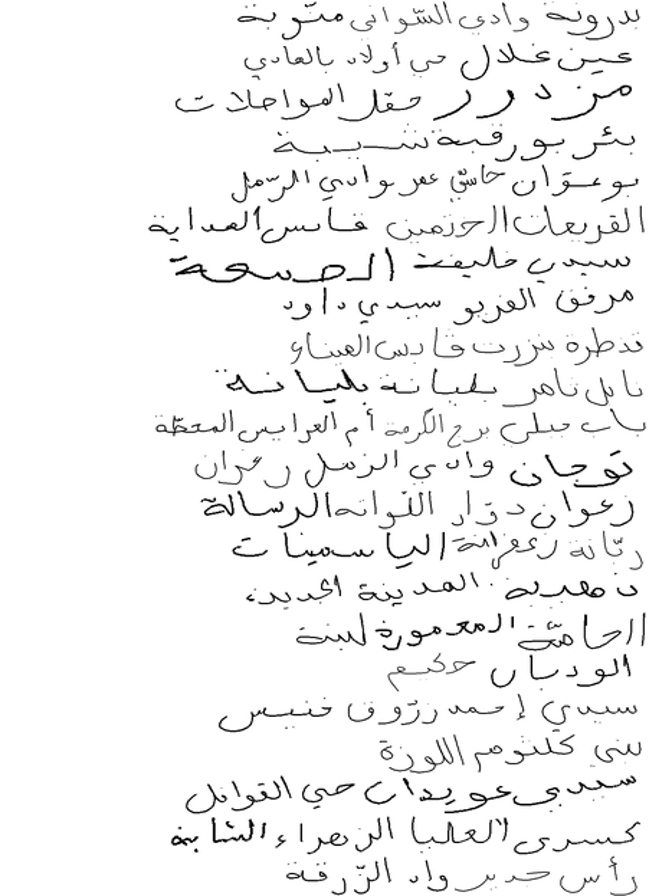 بدرونة وادي السّواني منّوبة
عين غلال حي أولاد بالهادي
مزدور حقل المواصلات
بئر بورقبة شبيبة
بوعوّان حاسّي عمر بوادي الرّمل
القريعات الحزمين قابس الهداية
سيدي خليفة الصبيعة
مرفق الغربو سيدي داود
قنطرة بنزرت قابس الميناء
نابل ثامر بليانة بليانة
باب جبلي برج الكرمة أم العرايس المحطّة
توجان وادي الرمل زعران
زعوان دوّار اللّواته الرسالة
رتّانة زعفرانة الياسمينات
المدينة الجديدة
الحامّة المعمورة لبنة
الوديان حكيم
سيدي إحمد زرّوق فنيس
بني كلثوم اللوزة
سيدي عويدان حي القوافل
كسرى العليا الزهراء الشابة
رأس حدير واد الزّرقة